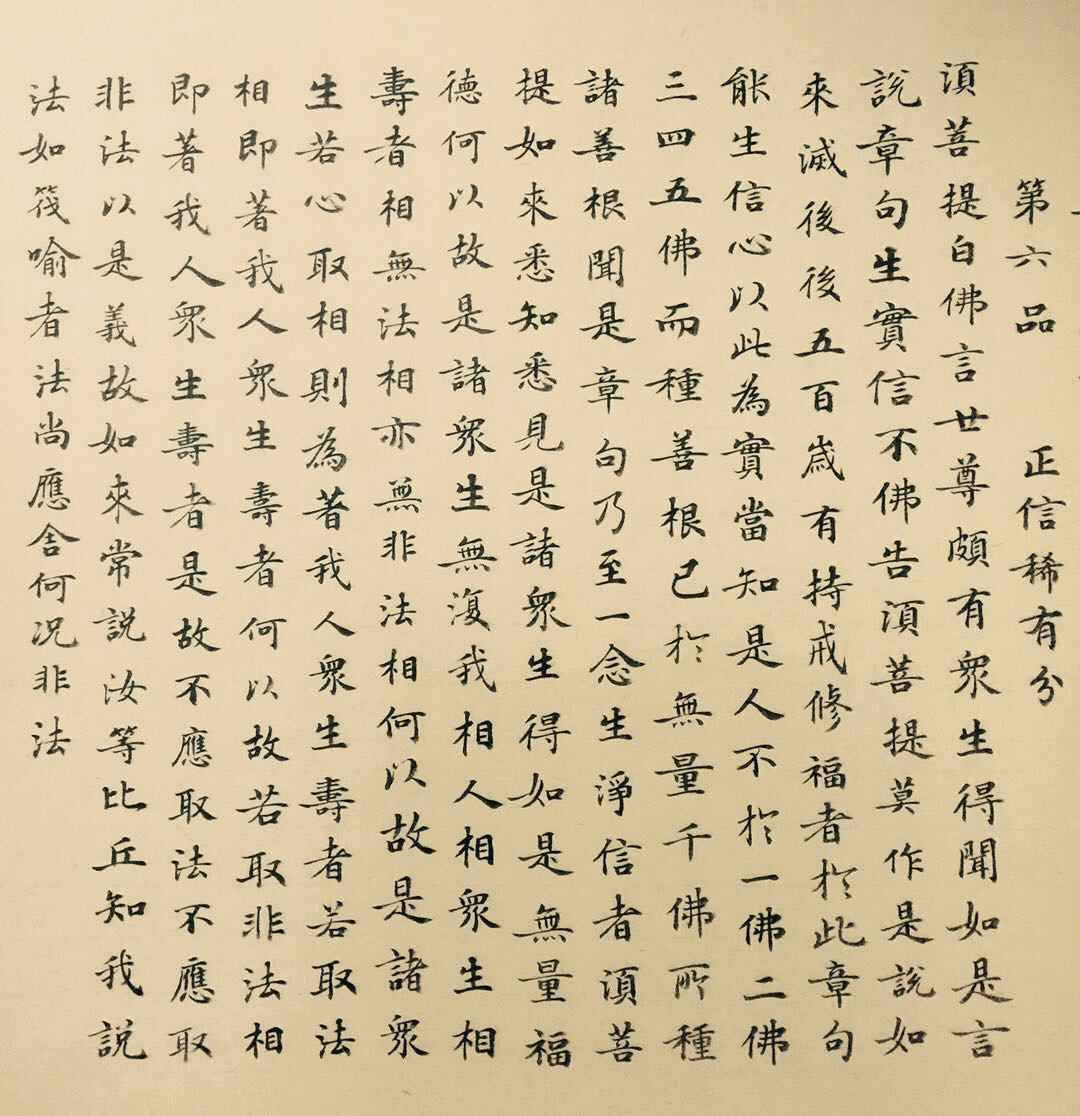 第六品 正信稀有分
須菩提白佛言世尊頗有衆生得聞如是言
說章句生實信不佛告須菩提莫作是說如
來滅後後五百歲有持戒修福者於此章句
能生信心以此為實當知是人不於一佛二佛
三四五佛而種善根已於無量千佛所種
諸善根聞是章句乃至一念生淨信者須菩
提如來悉知悉見是諸衆生得如是無量福
德何以故是諸衆生無復我相人相衆生相
壽者相無法相亦無非法相何以故是諸衆
生若心取相則為著我人衆生壽者若取法
相即著我人衆生壽者何以故若取非法相
即著我人衆生壽者是故不應取法不應取
非法以是義故如來常說汝等比丘知我說
法如筏喻者法尚應舍何况非法